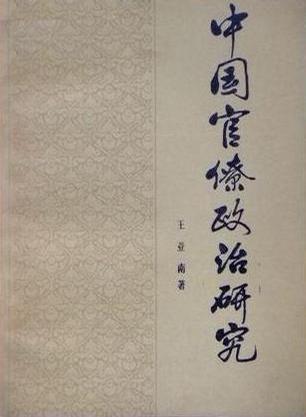 中国官僚政治研究
王亚南著